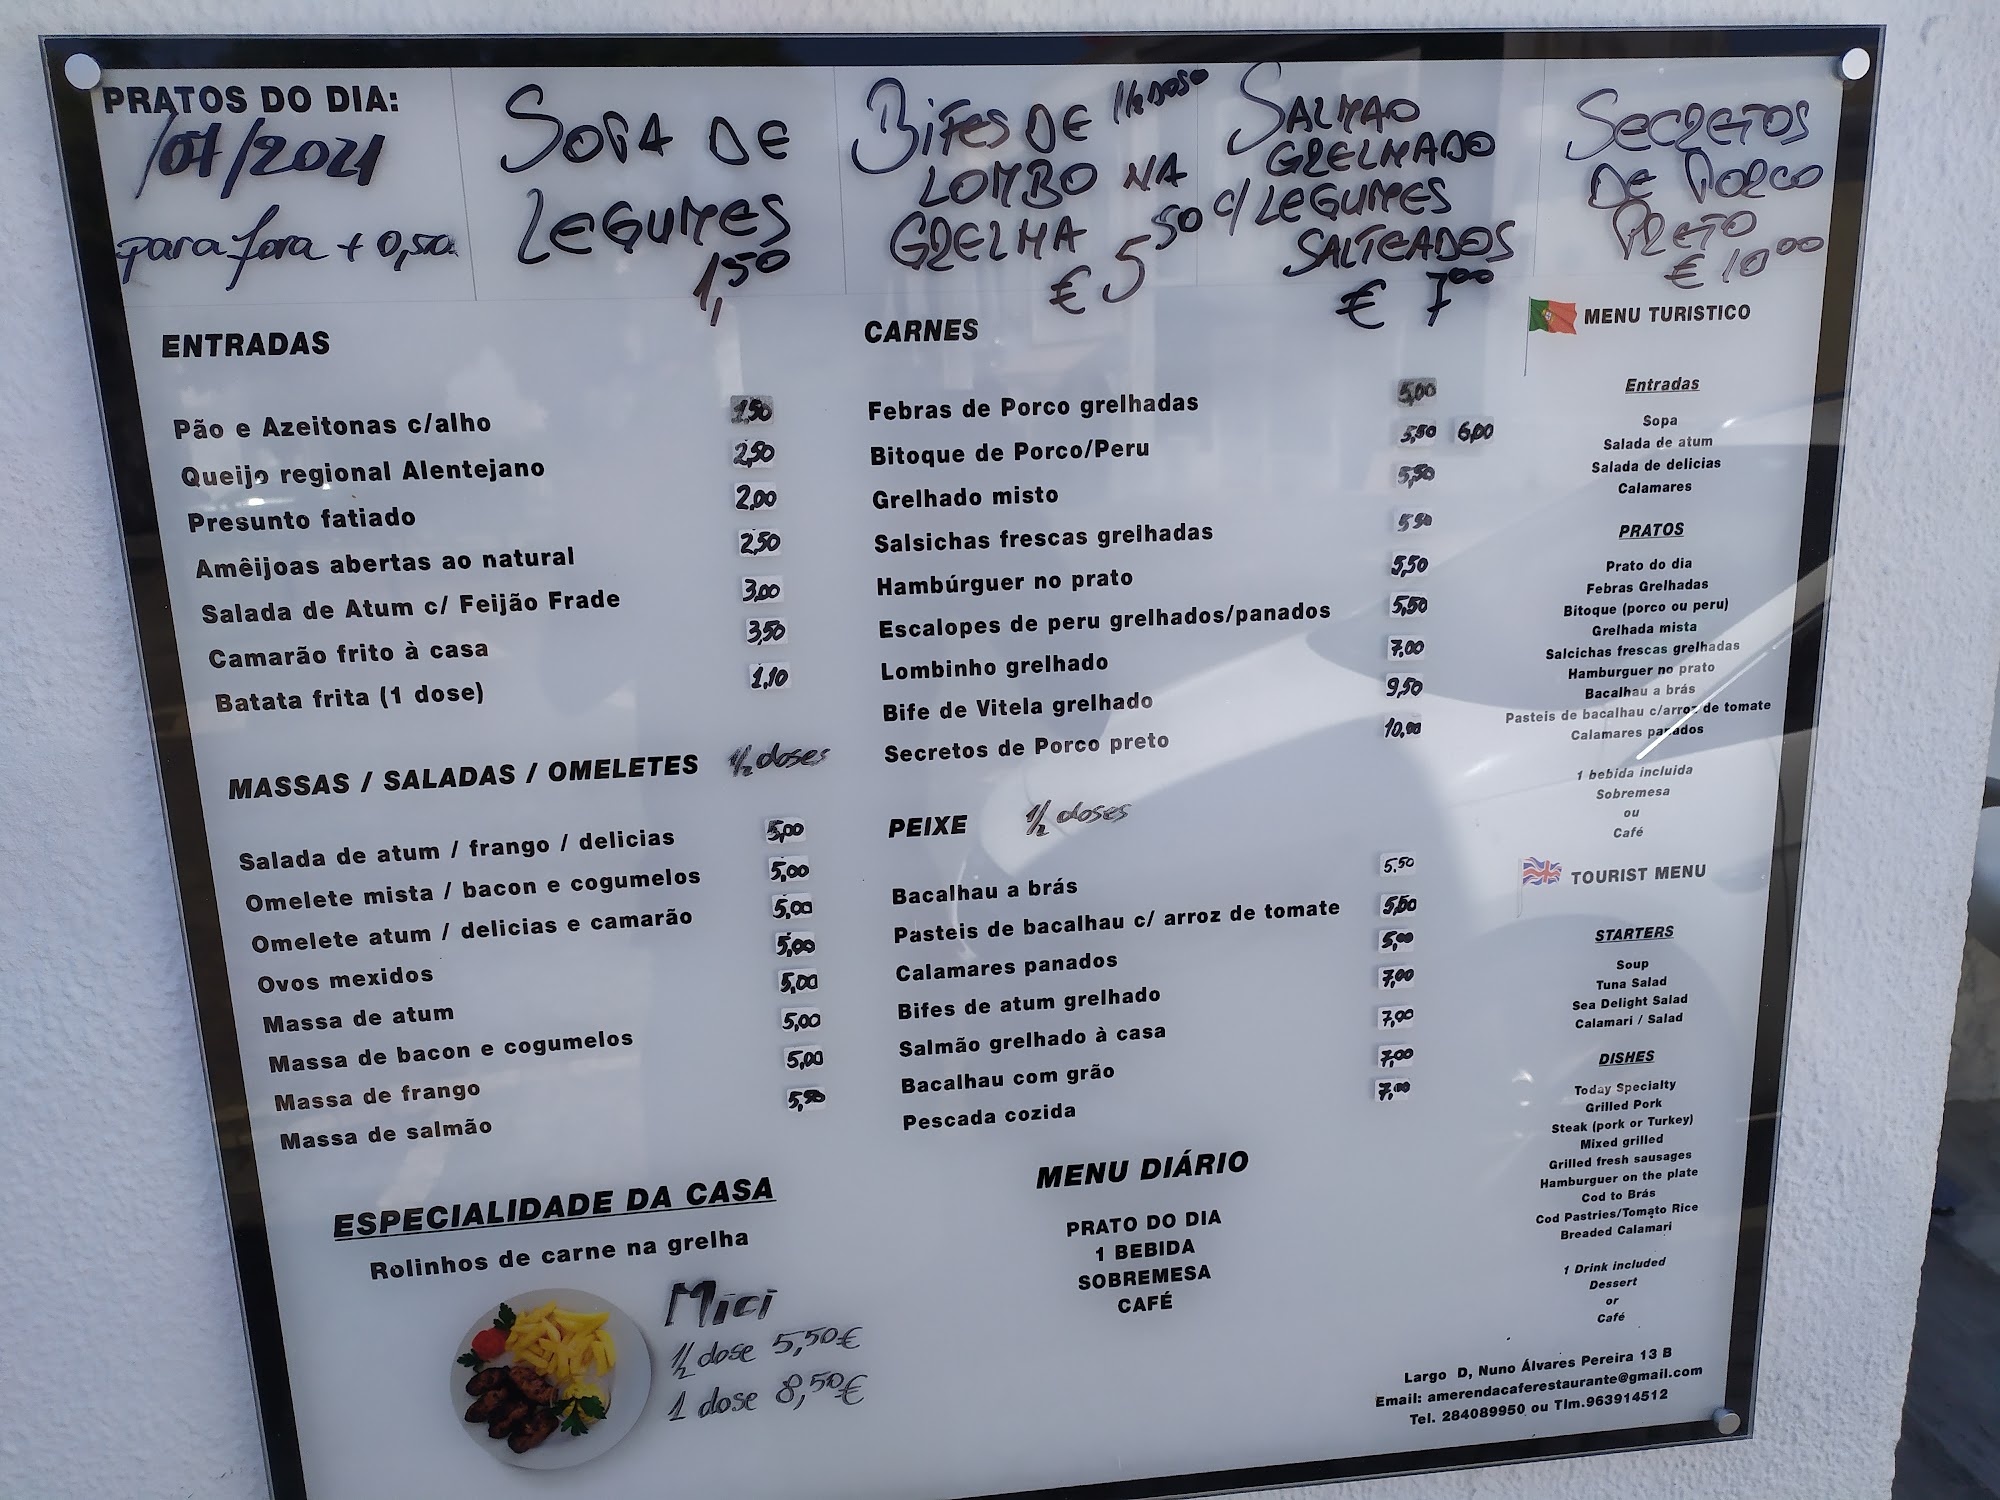 PRATOS DO DIA:
/07/2021
para fora + 0,50
SOPA DE
LEGUMES
1,50
BIFES DE 1/2 DOSE
LOMBO NA
GRELHA
€ 5,50
SALMAO
GRELHADO
C/ LEGUMES
SALTEADOS
€ 7,00
SECRETOS
DE PORCO
PRETO
€ 10,00
ENTRADAS
Pão e Azeitonas c/alho 1,50
Queijo regional Alentejano 2,50
Presunto fatiado 2,00
Amêijoas abertas ao natural 2,50
Salada de Atum c/ Feijão Frade 3,00
Camarão frito à casa 3,50
Batata frita (1 dose) 1,10
MASSAS / SALADAS / OMELETES 1/2 doses
Salada de atum / frango / delicias 5,00
Omelete mista / bacon e cogumelos 5,00
Omelete atum / delicias e camarão 5,00
Ovos mexidos 5,00
Massa de atum 5,00
Massa de bacon e cogumelos 5,00
Massa de frango 5,00
Massa de salmão 5,50
ESPECIALIDADE DA CASA
Rolinhos de carne na grelha
Mici
1/2 dose 5,50€
1 dose 8,50€
CARNES
Febras de Porco grelhadas 5,00
Bitoque de Porco/Peru 5,50 6,00
Grelhado misto 5,50
Salsichas frescas grelhadas 5,50
Hambúrguer no prato 5,50
Escalopes de peru grelhados/panados 5,50
Lombinho grelhado 7,00
Bife de Vitela grelhado 9,50
Secretos de Porco preto 10,00
PEIXE 1/2 doses
Bacalhau a brás 5,50
Pasteis de bacalhau c/ arroz de tomate 5,50
Calamares panados 5,00
Bifes de atum grelhado 7,00
Salmão grelhado à casa 7,00
Bacalhau com grão 7,00
Pescada cozida 7,00
MENU DIÁRIO
PRATO DO DIA
1 BEBIDA
SOBREMESA
CAFÉ
MENU TURISTICO
Entradas
Sopa
Salada de atum
Salada de delicias
Calamares
PRATOS
Prato do dia
Febras Grelhadas
Bitoque (porco ou peru)
Grelhada mista
Salcichas frescas grelhadas
Hamburguer no prato
Bacalhau a brás
Pasteis de bacalhau c/arroz de tomate
Calamares panados
1 bebida incluida
Sobremesa
ou
Café
TOURIST MENU
STARTERS
Soup
Tuna Salad
Sea Delight Salad
Calamari / Salad
DISHES
Today Specialty
Grilled Pork
Steak (pork or Turkey)
Mixed grilled
Grilled fresh sausages
Hamburguer on the plate
Cod to Brás
Cod Pastries/Tomato Rice
Breaded Calamari
1 Drink included
Dessert
or
Café
Largo D, Nuno Álvares Pereira 13 B
Email: amerendacaferestaurante@gmail.com
Tel. 284089950 ou Tlm.963914512